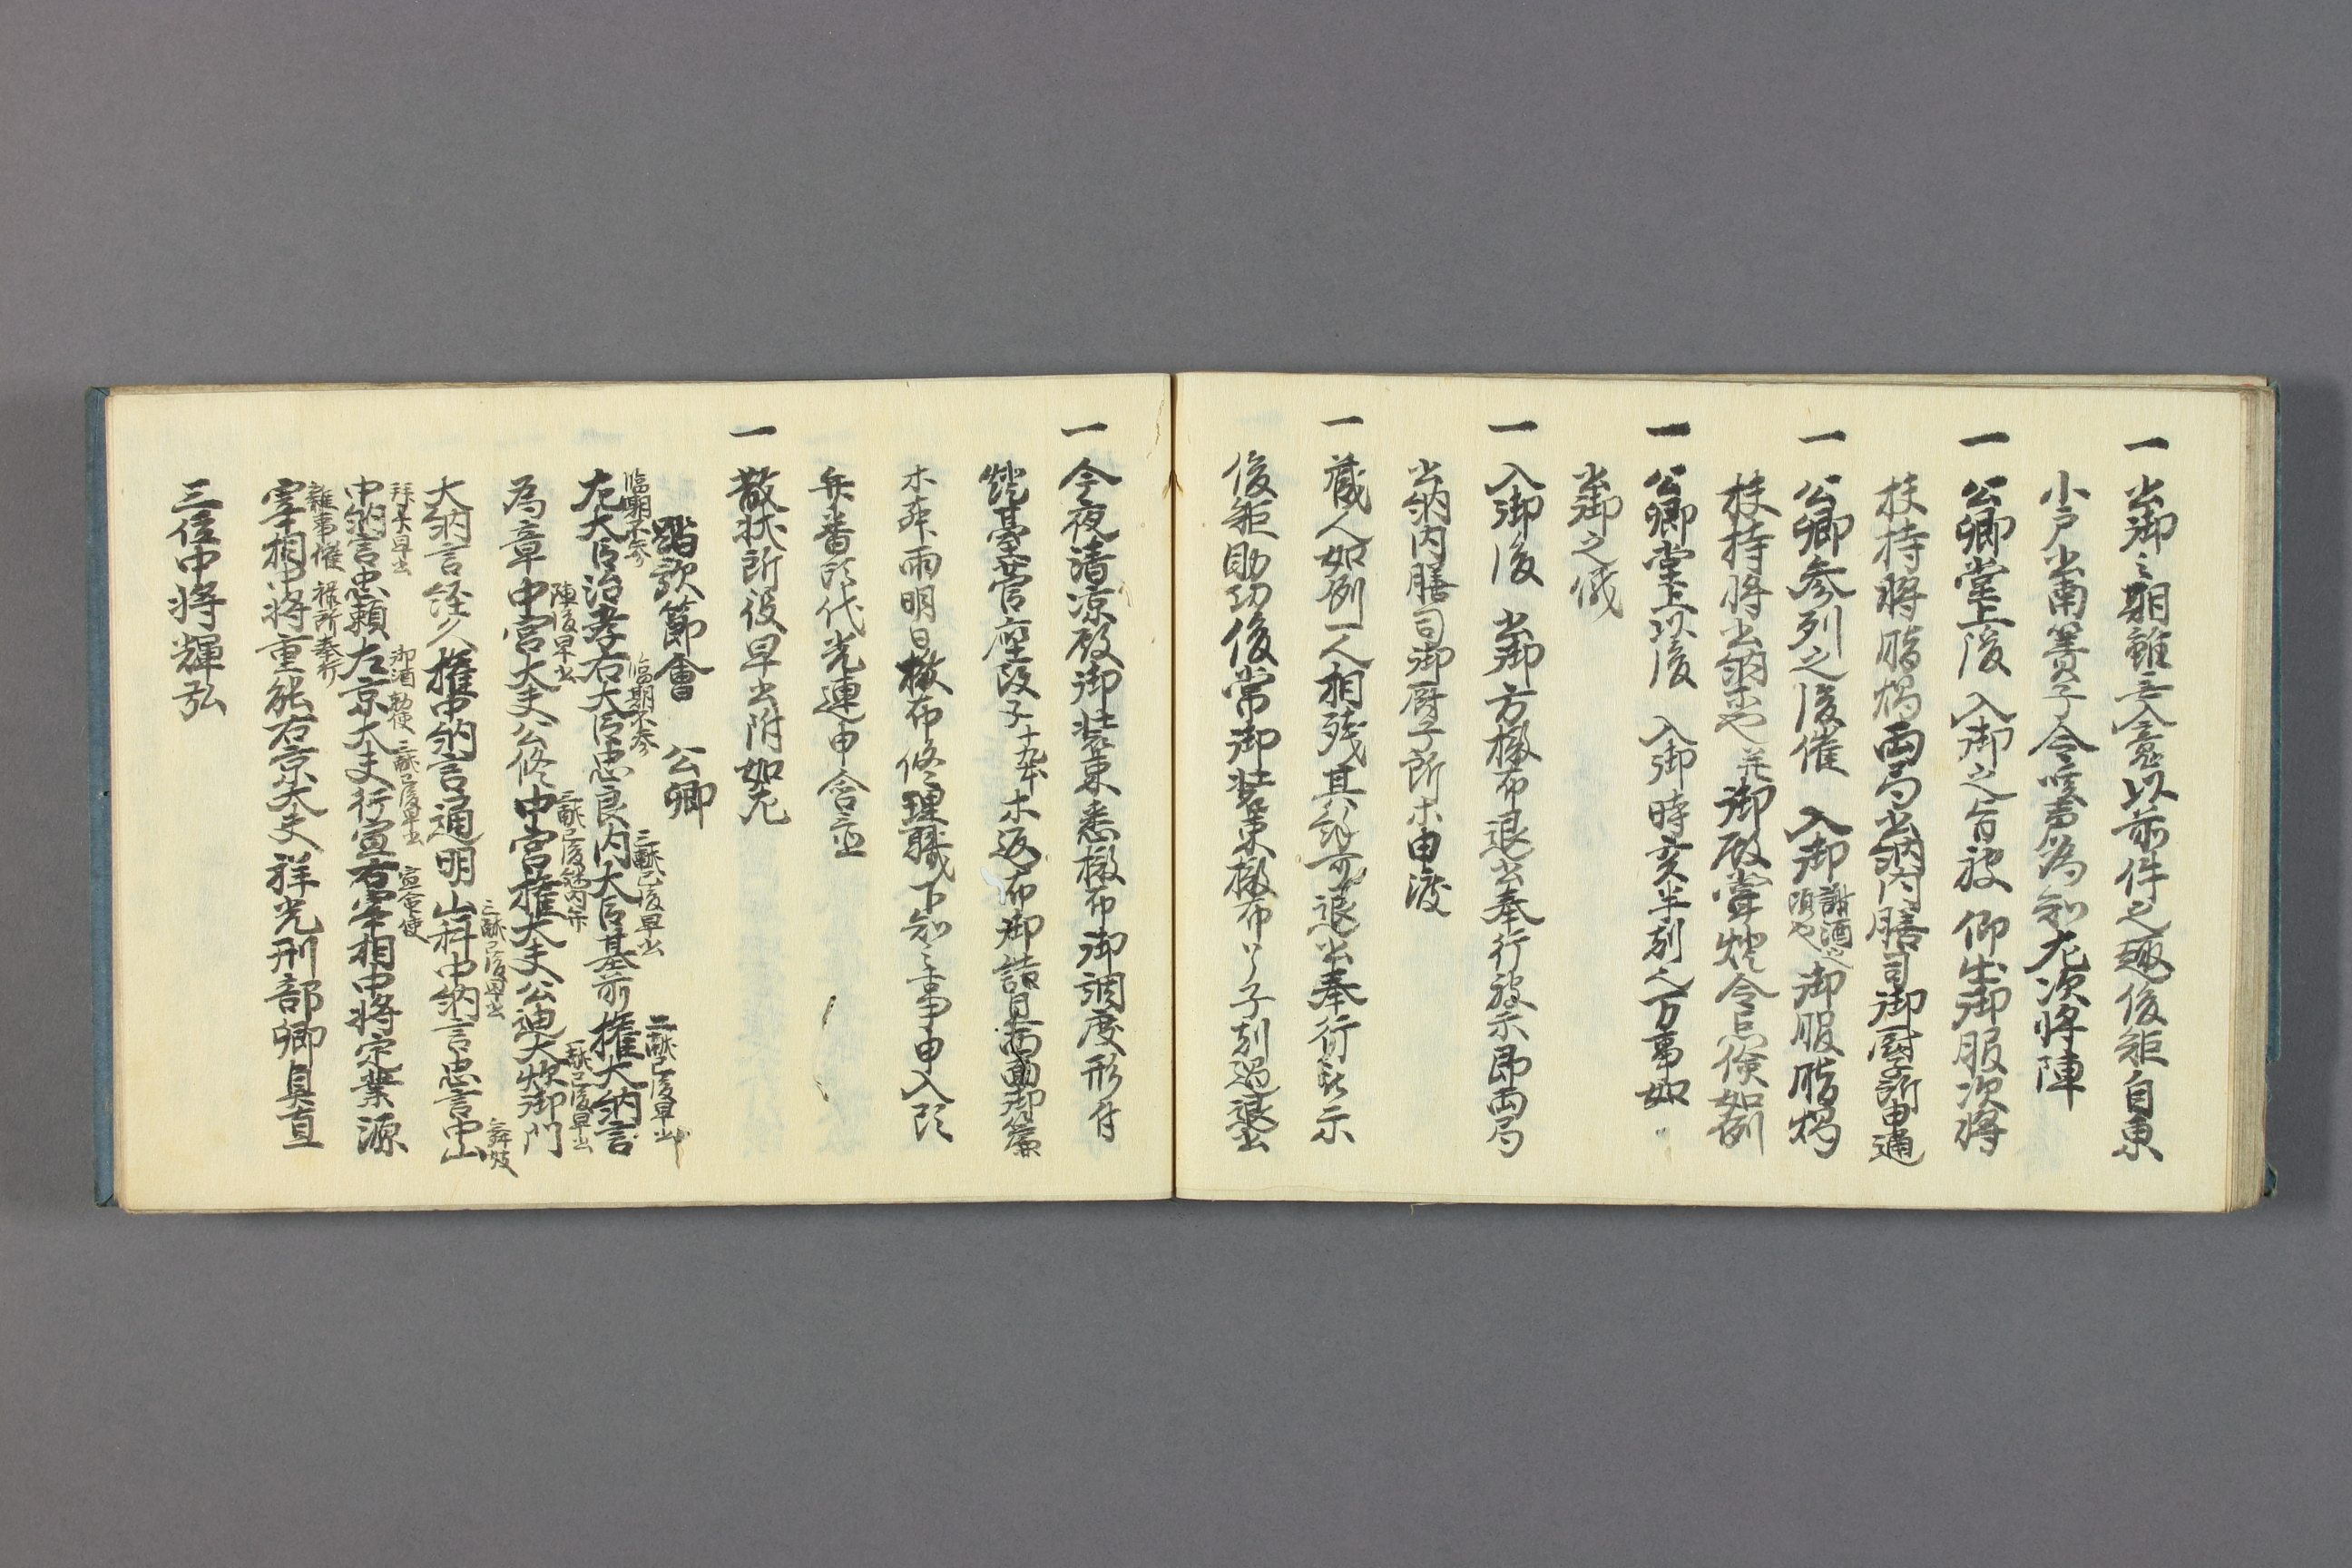 一出御之期雖無人意以前件之趣俊矩自東
小戸出南簀子令咳声為知左次将陣
一公卿堂上後入御之旨被仰出御服次将
扶持将脂燭両局出納内膳司御厨子所申通
一公卿参列之後催入御謝酒之頃也御服脂燭
扶持将出納木也并御殿掌燈令点倹如例
一公卿堂上以後入御時亥半刻之万事如
出御之儀
一入御後出御方撤布退出奉行被示即両局
出納内膳司御厨子所木申渡
一蔵人如例一人相残其余可退出奉行被示
俊矩助功俊常御装束撤布了子刻過退出
一今夜清凉殿御装束悉撤布御調度形付
燈台菅座段子十九本木返布御詰日
木葬雨明日撤布修理職下知之事申入
年番代光連申含
一散状所役早出附如左
踏歌節會 公卿
臨期不参 臨期不参 三献已後早出 二献已後早出
左大臣治孝右大臣忠良内大臣基前権大納言
陣後早出 二献已後 内弁 一献已後早出
為章中宮大夫公修中宮権大夫公迪大炊御門
三献已後早出 舞妓
大納言経久権中納言通明山科中納言忠言中山
拝
早出 御酒勅使 二献已後早出 宣命使
中納言忠頼左京大夫行宣右宰相中将定業源
雑事催 禄所奉行
宰相中将重能右京大夫祥光刑部卿貞直
三位中将輝弘